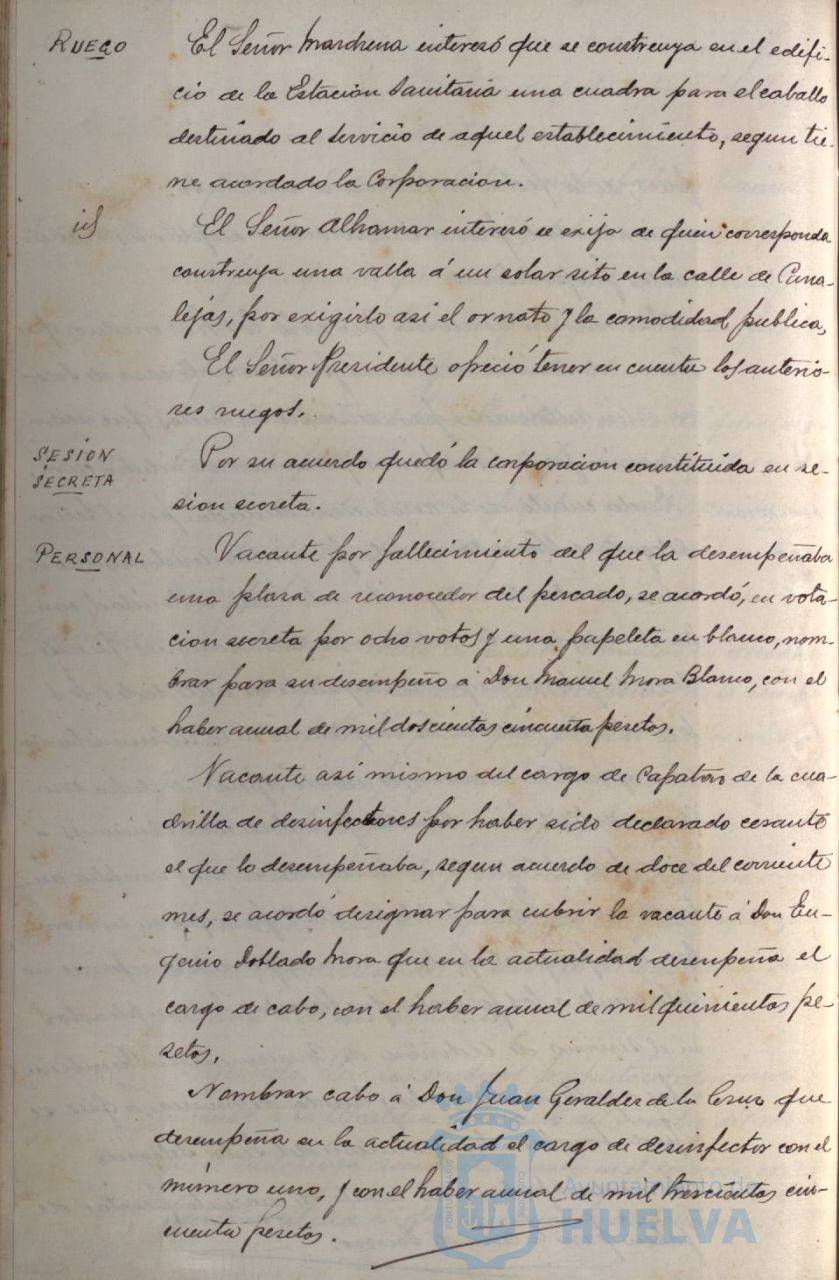 RUEGO
El Señor Marchena interesó que se construya en el edifi-
cio de la Estación Sanitaria una cuadra para el caballo
destinado al servicio de aquel establecimiento, segun tie-
ne acordado la Corporacion.
id
El Señor Alhamar interesó se exija de quien corresponda
construya una valla á un solar sito en la calle de Cana-
lejas, por exigirlo asi el ornato y la comodidad publica,
El Señor Presidente ofreció tener en cuenta los anterio-
res ruegos.
SESIÓN
SECRETA
Por su acuerdo quedó la corporacion constituida en se-
sion secreta.
PERSONAL
Vacante por fallecimiento del que la desempeñaba
una plaza de reconocedor del pescado, se acordó, en vota-
cion secreta por ocho votos y una papeleta en blanco, nom-
brar para su desempeño á Don Manuel Mora Blanco, con el
haber anual de mil doscientas cincuenta pesetas.
Vacante asi mismo del cargo de Capataz de la cua-
drilla de desinfectores por haber sido declarado cesante
el que lo desempeñaba, segun acuerdo de doce del corriente
mes, se acordó designar para cubrir la vacante á Don Eu-
genio Doblado Mora que en la actualidad desempeña el
cargo de cabo, con el haber anual de mil quinientas pe-
setas,
Nombrar cabo á Don Juan Geraldes de la Cruz que
desempeña en la actualidad el cargo de desinfector con el
número uno, y con el haber anual de mil trescientas cin-
cuenta pesetas.
Ayuntamiento de
HUELVA